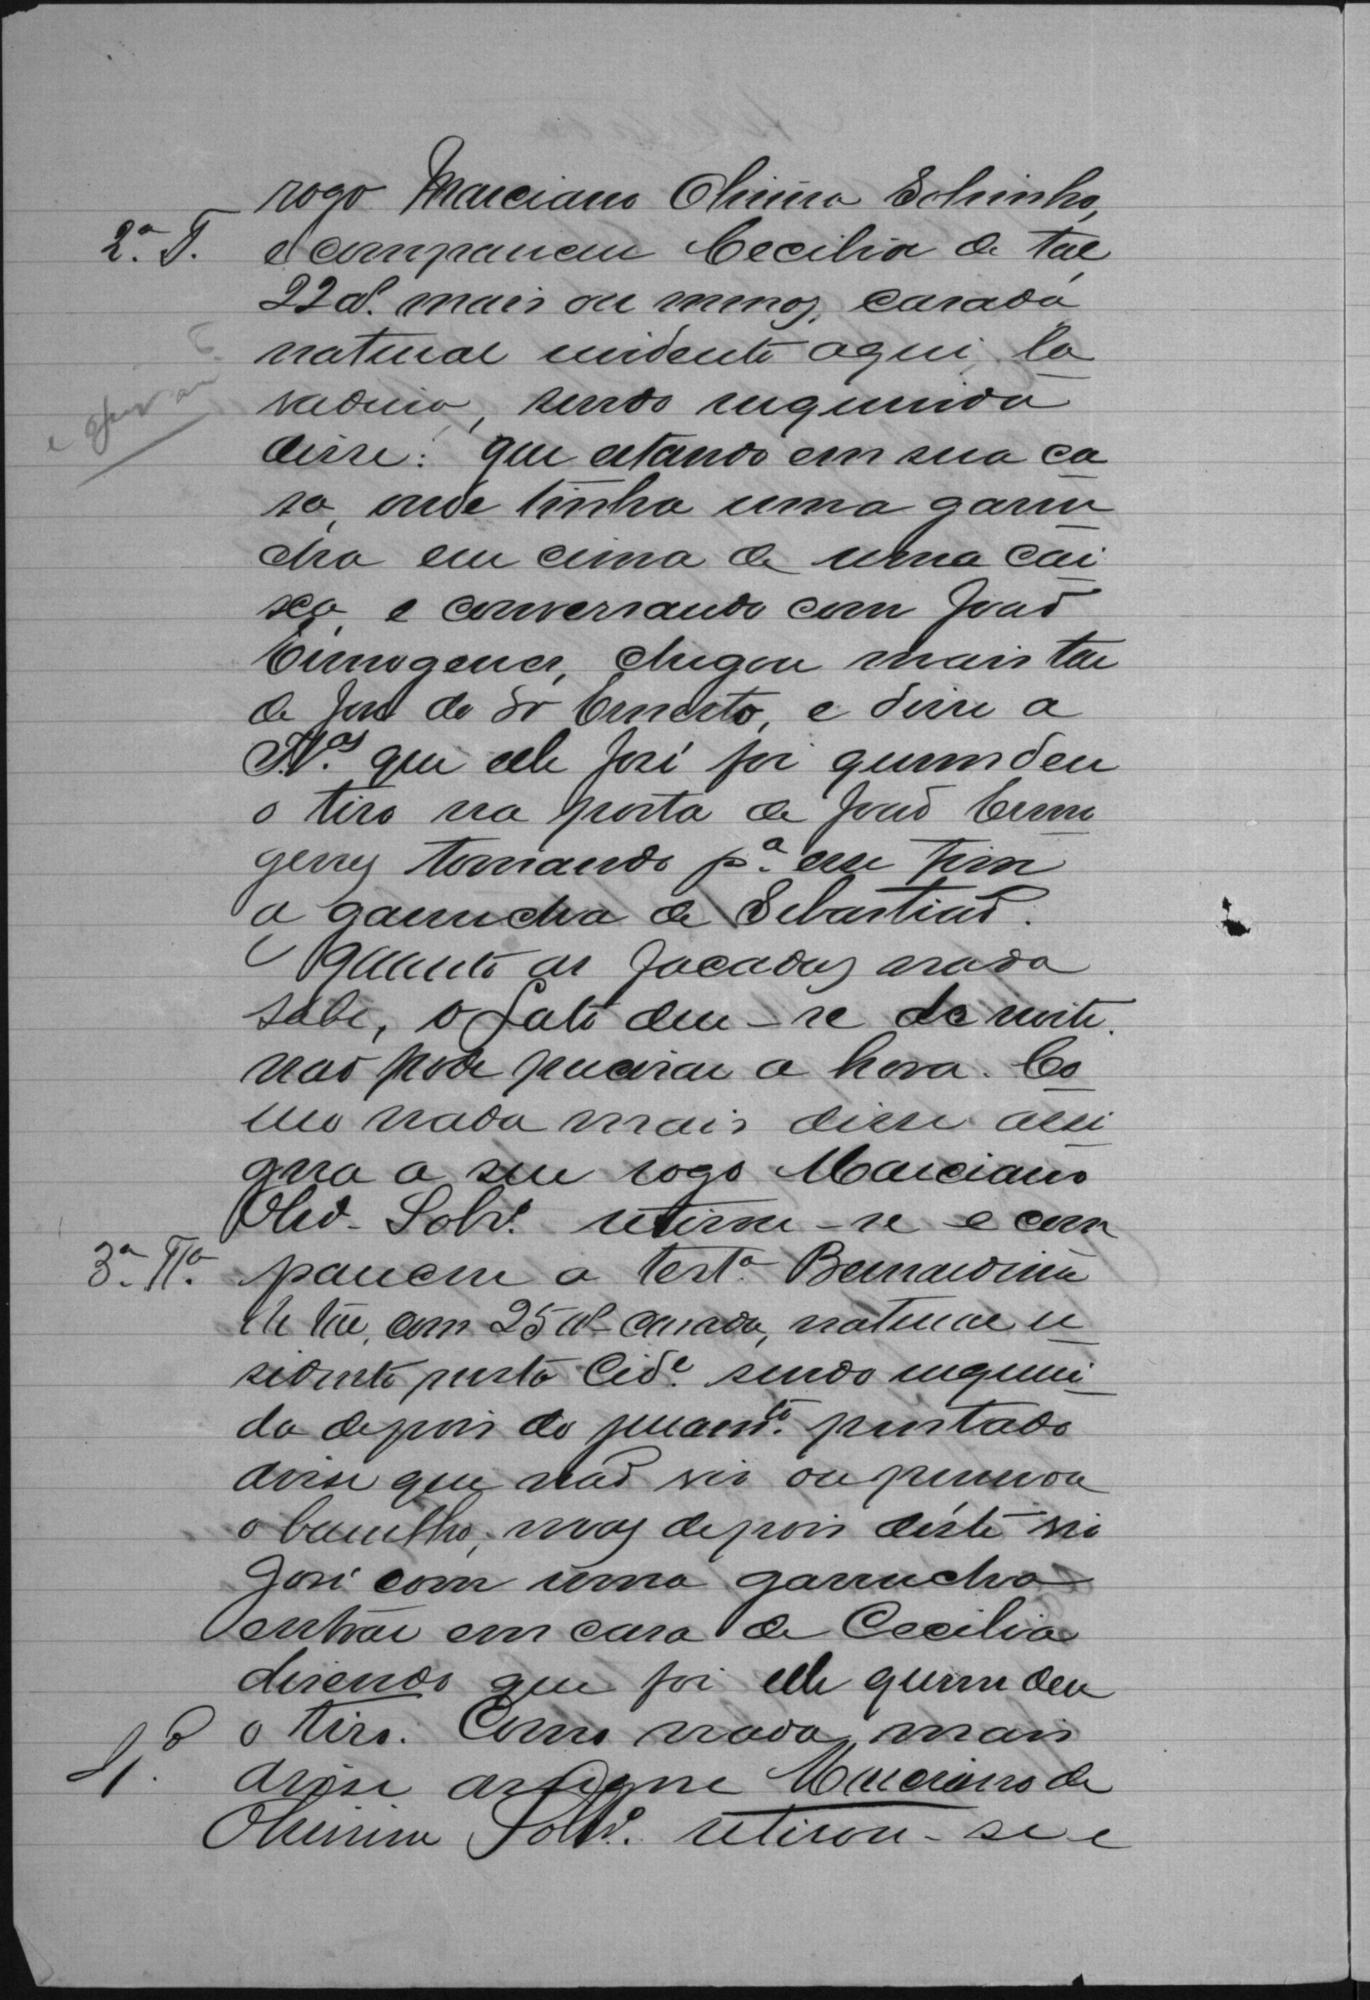 rogo Marciano Oliveira Sobrinho,
2.ª T. e compareceu Cecilia de tal
22 as. mais ou menos, casada
natural residente aqui, la
vadeira, sendo inquirida
disse: que estando em sua ca
sa, onde tinha uma garru
cha em cima de uma cai
xa, e conversando com João
Ermogenes, chegou mais tar
de José do Sr Ernesto, e disse a
que elle José foi quem deu
o tiro na porta de João Ermo
genes tomando p.ª esse fim
a garrucha de Sebastião.
Quanto as facadas nada
sabe, o fato deu-se de noite
não pode precisar a hora. Co
mo nada mais disse assi
gna a seu rogo Marciano
Oliv. Sobr.º retirou-se e com
3.ª Tª. pareceu a test.ª Bernardina
de tal, com 25 as. casada, natural re
sidente nesta Cid.e sendo inqueri
da depois do juram.to prestado
disse que não viu ou presenciou
o barulho, mas depois deste viu
José com uma garrucha
entrar em casa de Cecilia
disendo que foi elle quem deu
o tiro. Como nada mais
disse assigna Marciano de
Oliveira Sobr.º retirou-se e